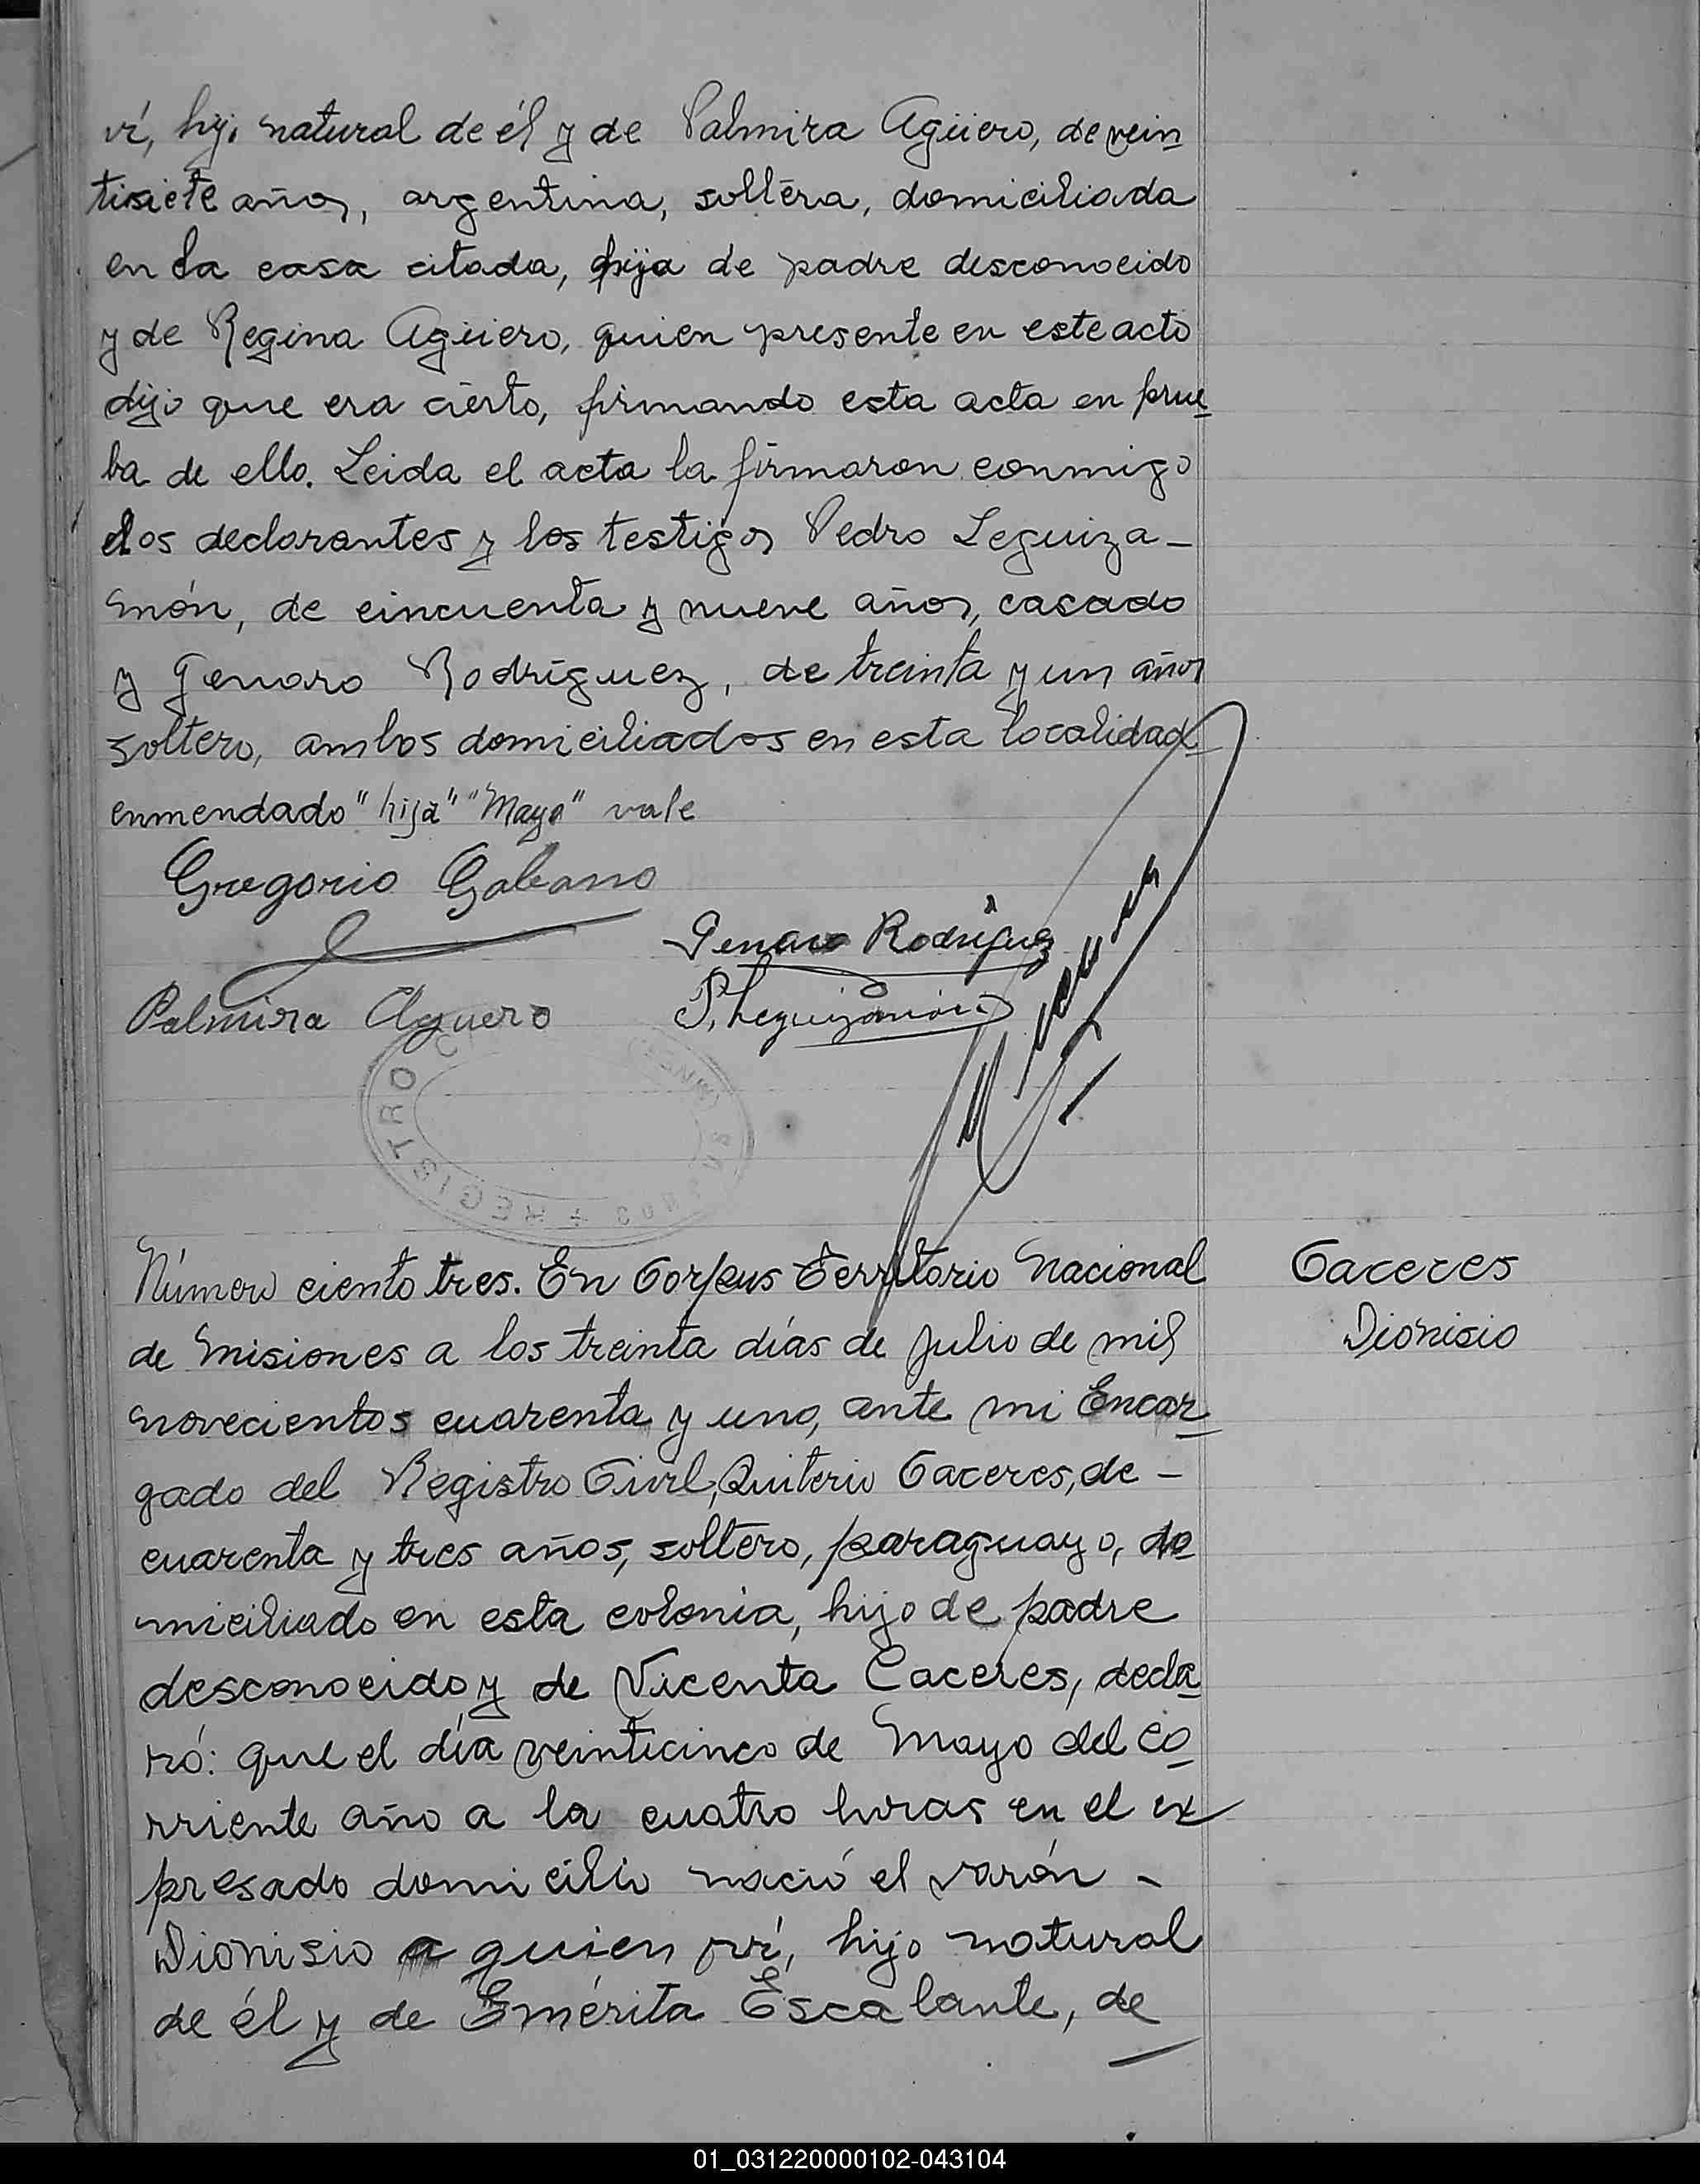 ví, hijo natural de él y de Palmira Agüero, de vein
tisiete años, argentina, soltera, domiciliada
en la casa citada, hija de padre desconocido
y de Regina Agüero, quien presente en este acto
dijo que era cierto, firmando esta acta en prue
ba de ello. Leida el acta la firmaron conmigo
los declarantes y los testigos Pedro Leguiza-
món, de cincuenta y nueve años, casado
y Genaro Rodríguez, de treinta y un años
soltero, ambos domiciliados en esta localidad
enmendado "hija" "Mayo" vale
Gregorio Galeano
Genaro Rodríguez
Palmira Aguero
P. Leguizamón
REGISTRO
Número ciento tres. En Corpus Territorio Nacional
Caceres
de Misiones a los treinta días de Julio de mil
Dionisio
novecientos cuarenta y uno, ante mi Encar
gado del Registro Civil, Quiterio Caceres, de -
cuarenta y tres años, soltero, paraguayo, do
miciliado en esta colonia, hijo de padre
desconocido y de Vicenta Caceres, decla
ró: que el día veinticinco de Mayo del co
rriente año a la cuatro horas en el ex
presado domicilio nació el varón -
Dionisio a quien ví, hijo natural
de él y de Emérita Escalante, de
01_031220000102-043104